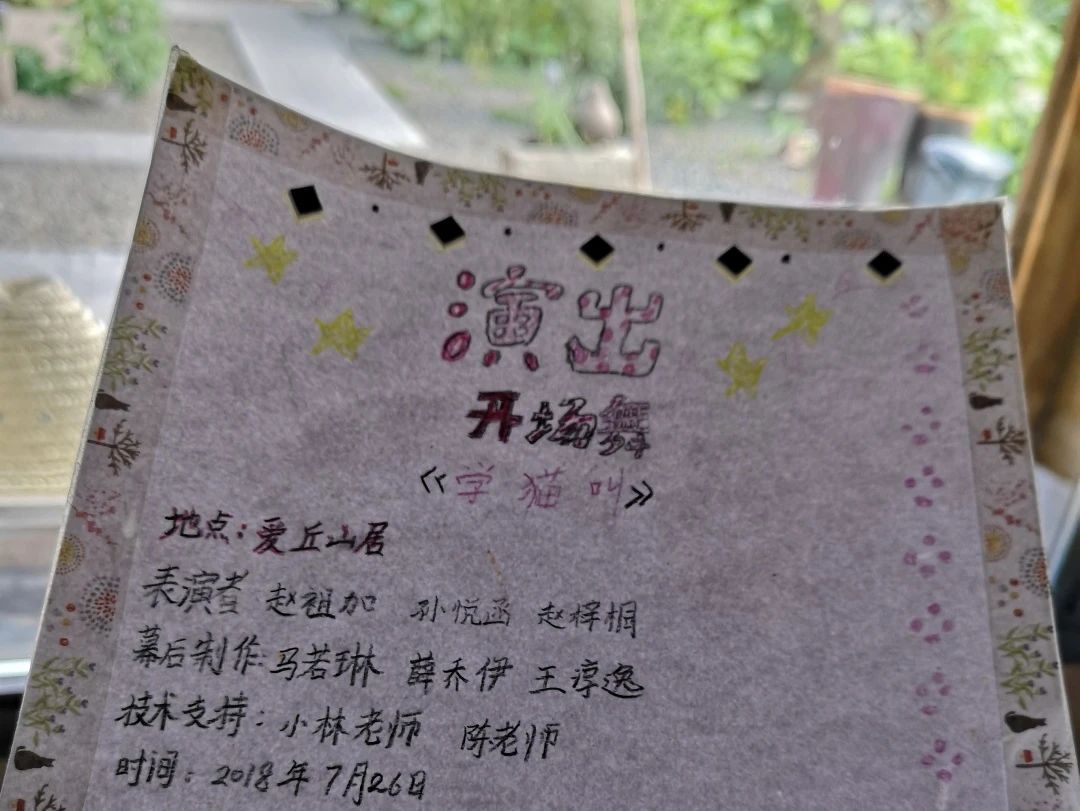 演出
开场舞
《学猫叫》
地点:爱丘山居
表演者 赵祖加 孙悦函 赵梓桐
幕后制作:马若琳 薛乔伊 王淳逸
技术支持:小林老师 陈老师
时间:2018年7月26日